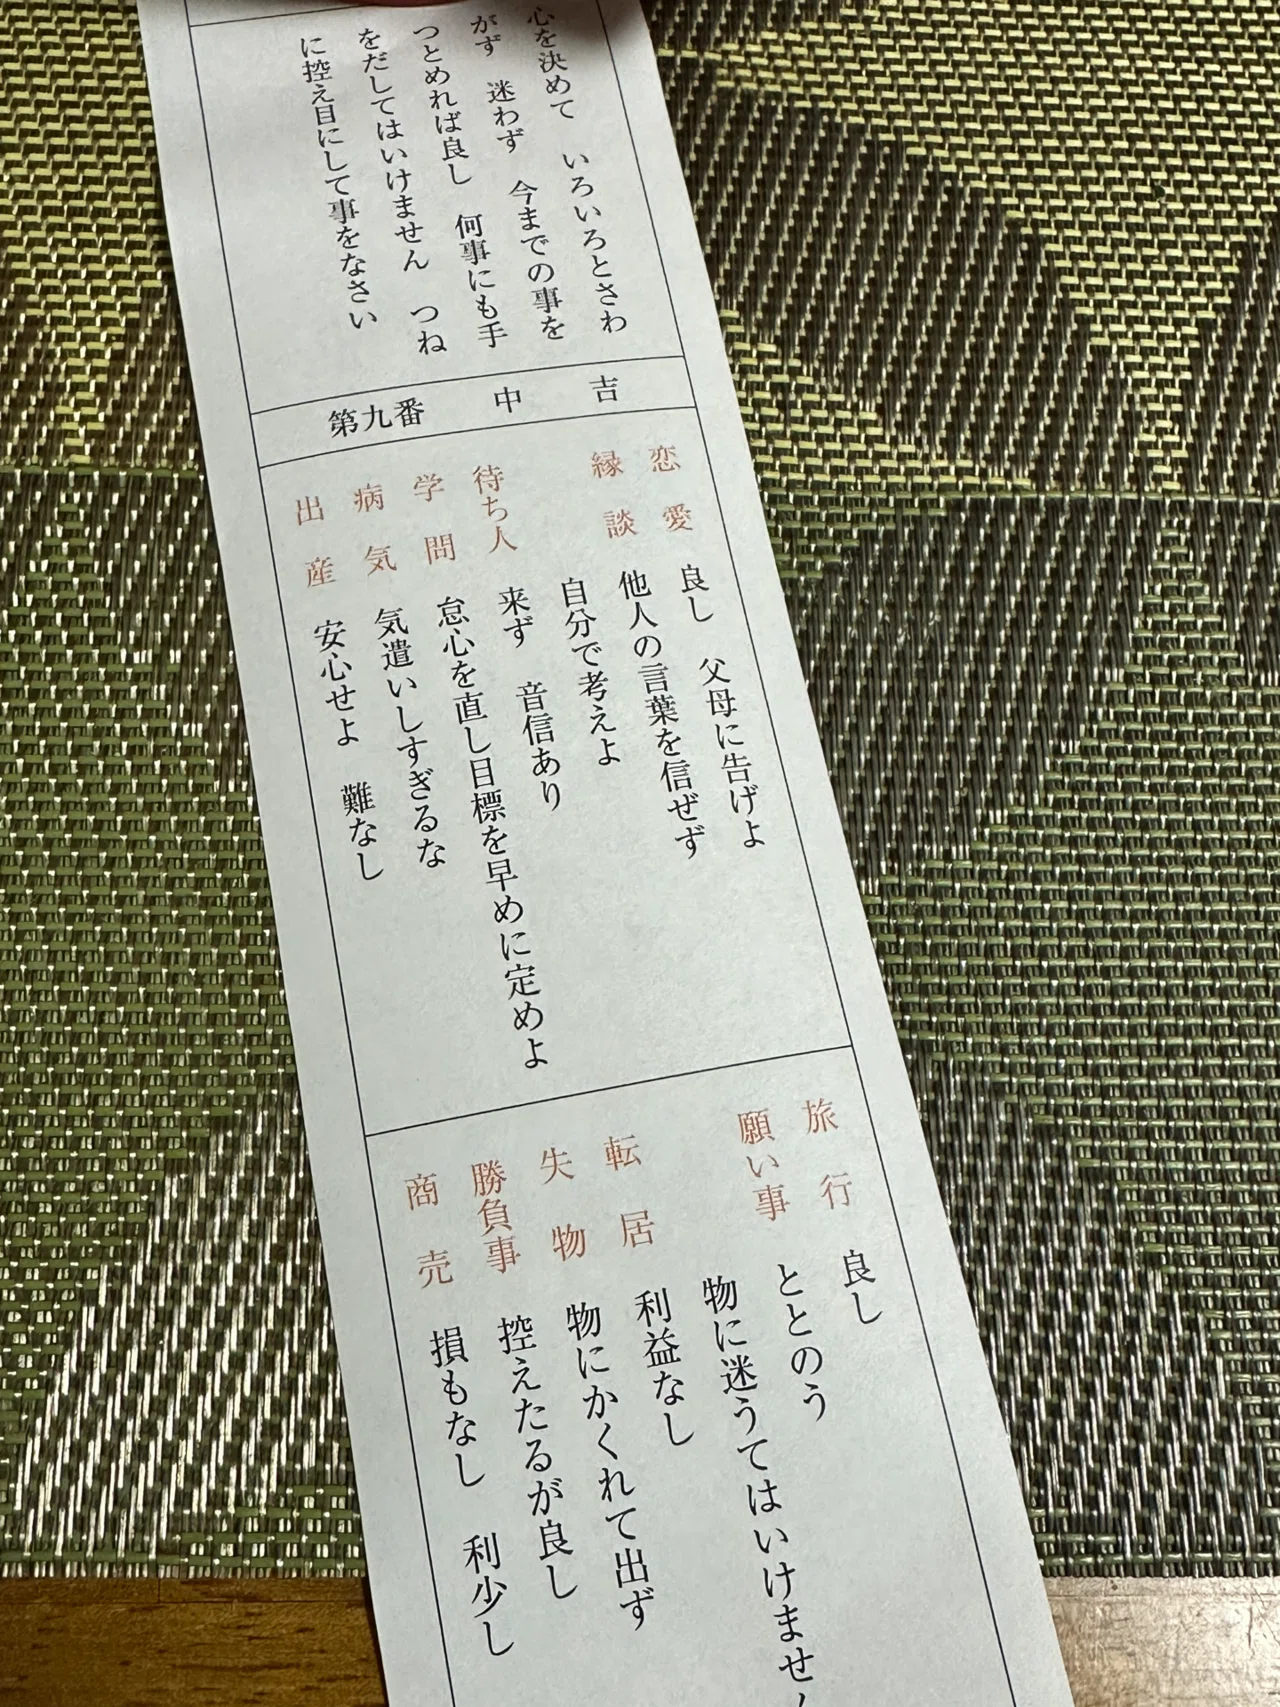 心を決めて　いろいろとさわ
がず　迷わず　今までの事を
つとめれば良し　何事にも手
をだしてはいけません　つね
に控え目にして事をなさい
第九番　中　吉
恋愛　良し　父母に告げよ
縁談　他人の言葉を信ぜず
自分で考えよ
待ち人　来ず　音信あり
学問　怠心を直し目標を早めに定めよ
病気　気遣いしすぎるな
出産　安心せよ　難なし
旅行　良し
願い事　ととのう
物に迷うてはいけません
転居　利益なし
失物　物にかくれて出ず
勝負事　控えたるが良し
商売　損もなし　利少し